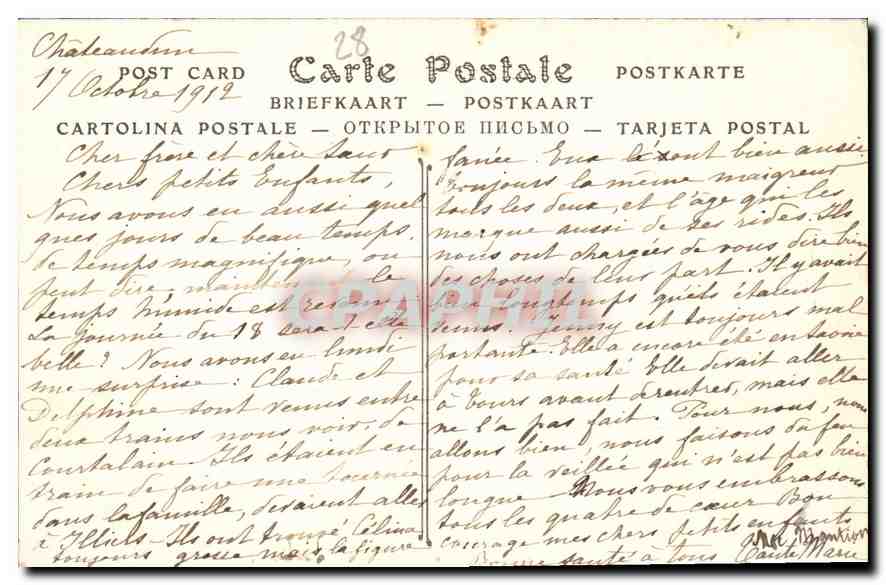 Châteaudun
28
17 Octobre 1912
POST CARD Carte Postale POSTKARTE
BRIEFKAART — POSTKAART
CARTOLINA POSTALE — ОТКРЫТОЕ ПИСЬМО — TARJETA POSTAL
Cher frère et chère Sœur
Chers petits Enfants,
Nous avons eu aussi quel
ques jours de beau temps.
de temps magnifique, on
peut dire, le
temps humide est revenu
La journée du 18 sera-t-elle
belle? Nous avons eu lundi
une surprise: Claude et
Delphine sont venus entre
deux trains nous voir, de
Courtalain. Ils étaient en
train de faire une tournée
dans la famille, devaient aller
à Illiers. Ils ont trouvé Célina
toujours grosse mais la figure
fanée. Eux sont bien aussi
toujours la même maigreur
tous les deux, et l'âge qui les
marque aussi de ses rides. Ils
nous ont chargées de vous dire bien
des choses de leur part. Il y avait
longtemps qu'ils étaient
venus. Jenny est toujours mal
portante. Elle a encore été en Savoie
pour sa santé. Elle devait aller
à Tours avant de rentrer, mais elle
ne l'a pas fait. Pour nous, nous
allons bien, nous faisons du feu
pour la veillée qui n'est pas bien
longue. Nous vous embrassons
tous les quatre de cœur. Bon
courage mes chers petits enfants
Bonne santé à tous Tante Marie
CPAPHIL